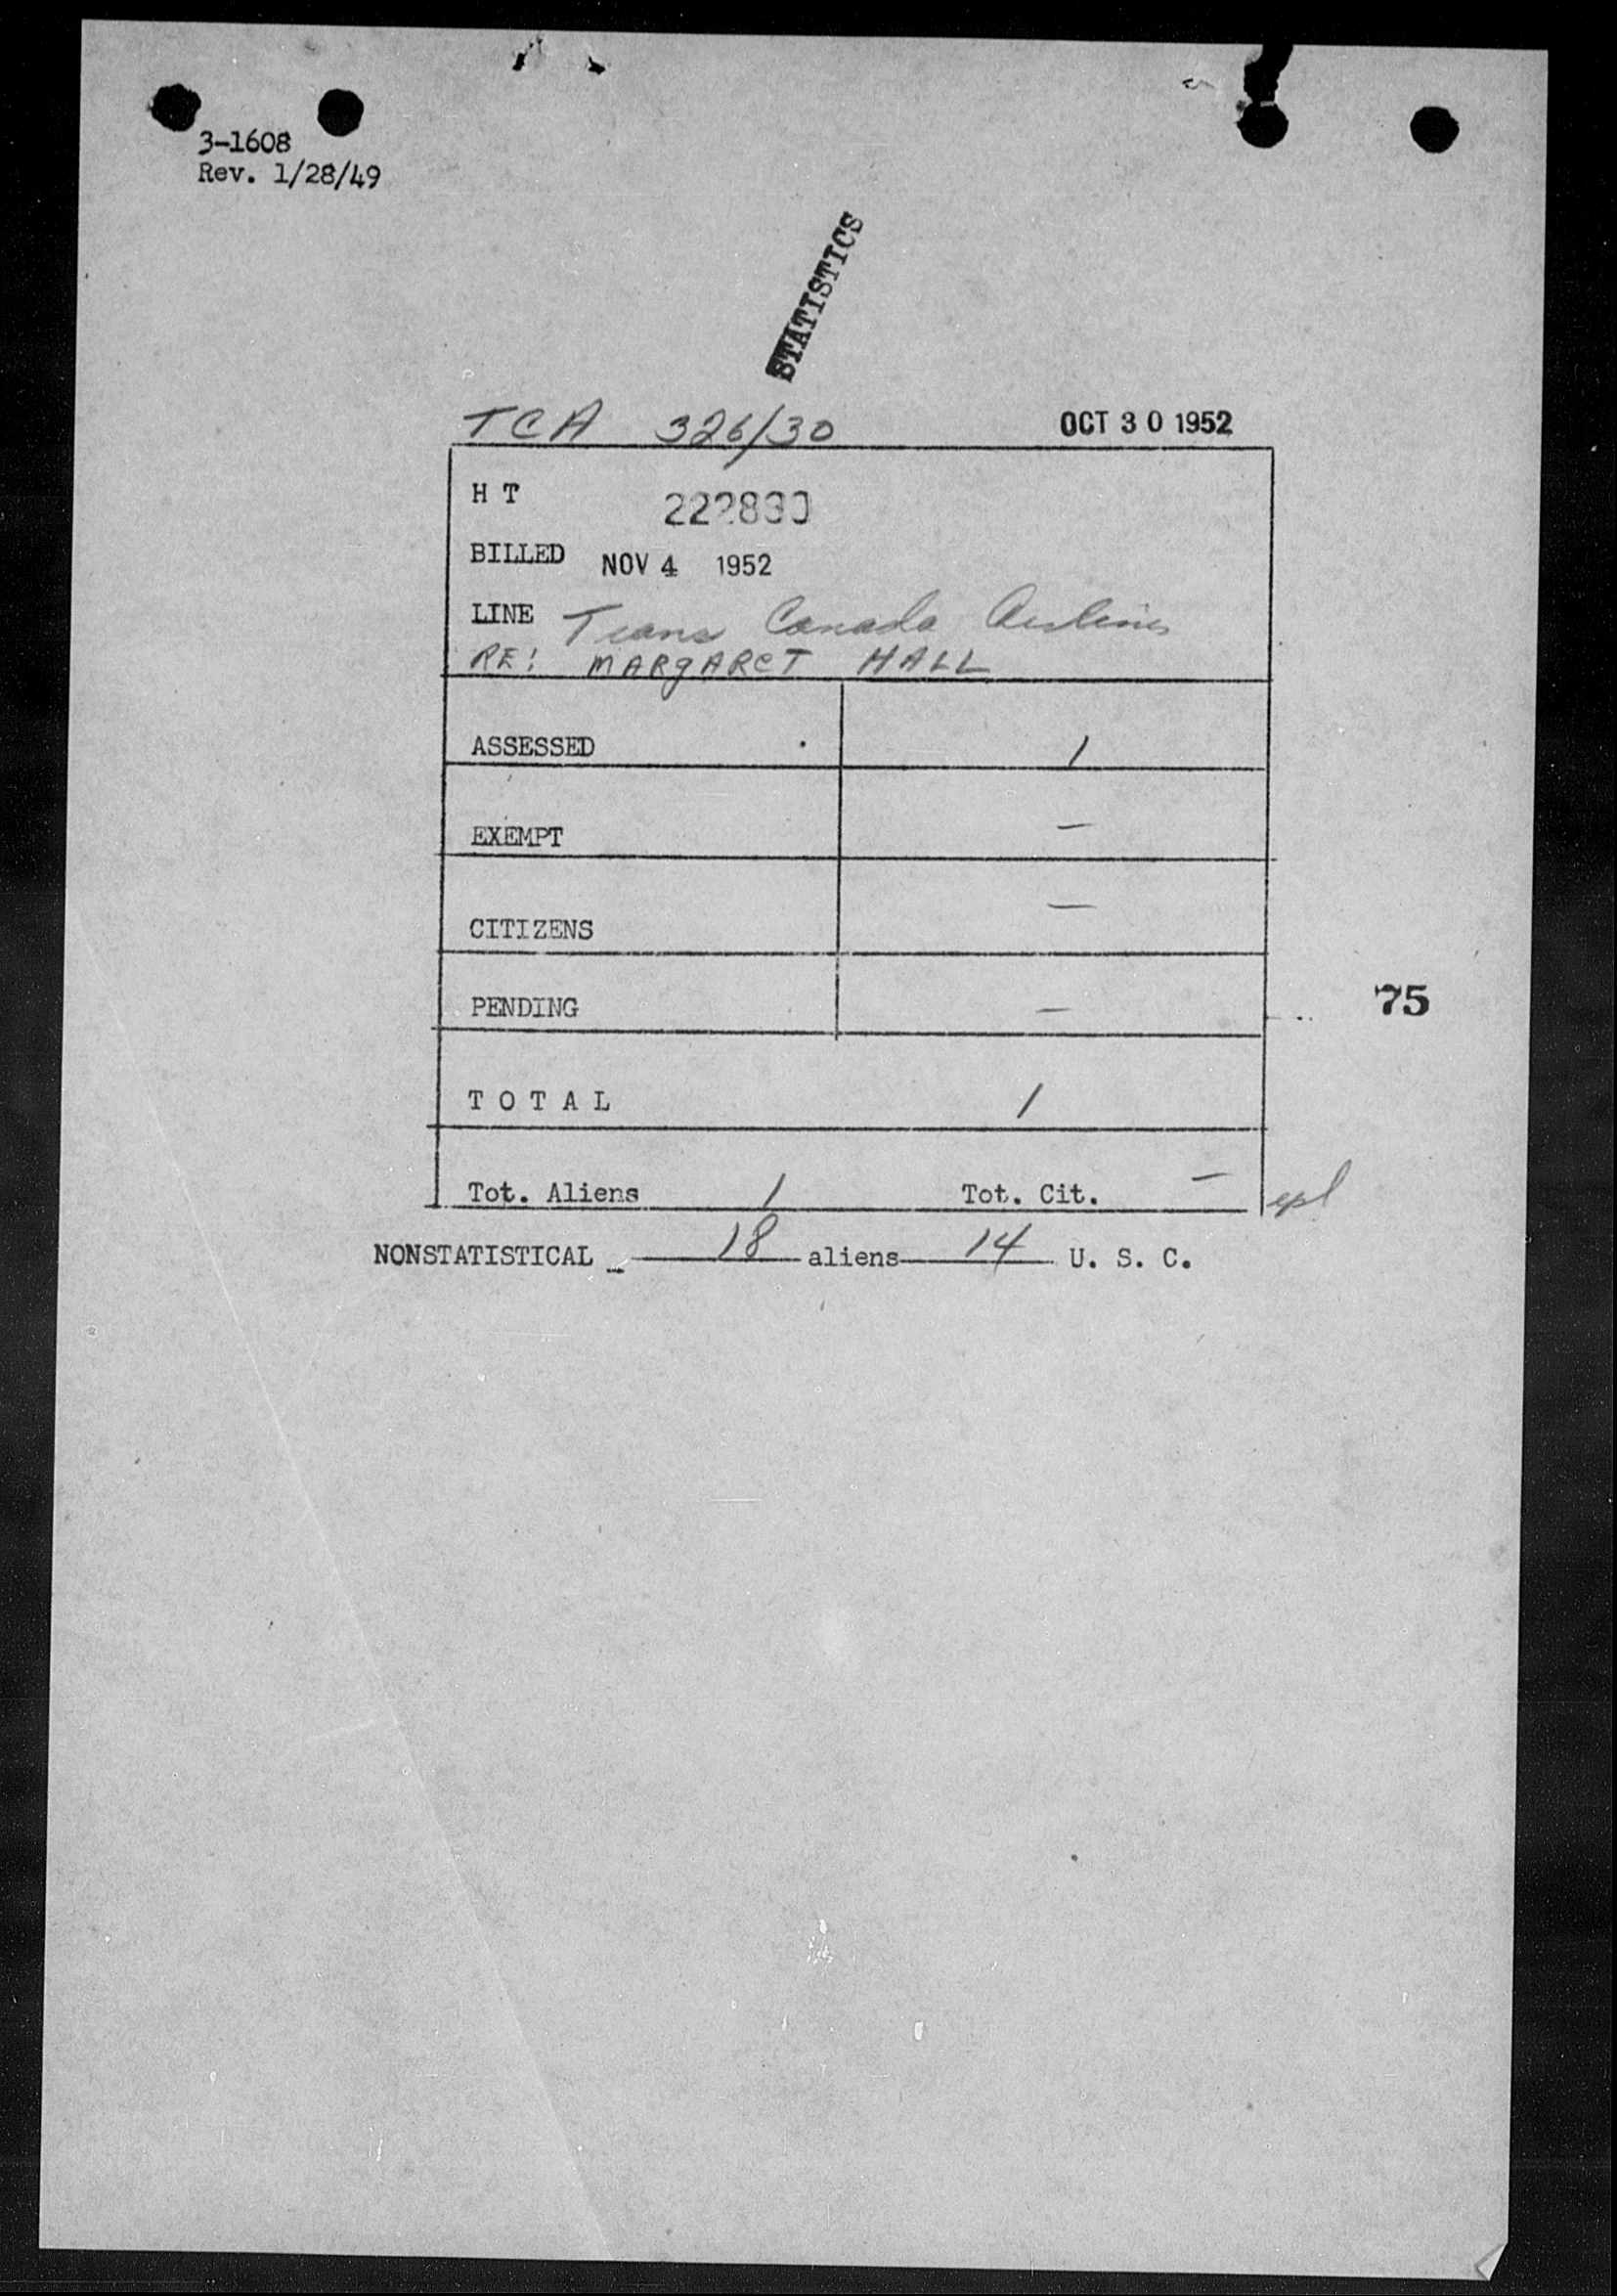 3-1608
Rev. 1/28/49
STATISTICS
TCA 326/30 OCT 30 1952
H T
BILLED NOV 4 1952
LINE Trans Canada Airlines
RE: MARGARET HALL
ASSESSED 1
EXEMPT —
CITIZENS —
PENDING —
75
T O T A L 1
Tot. Aliens 1 Tot. Cit. —
NONSTATISTICAL 18 aliens 14 U. S. C.